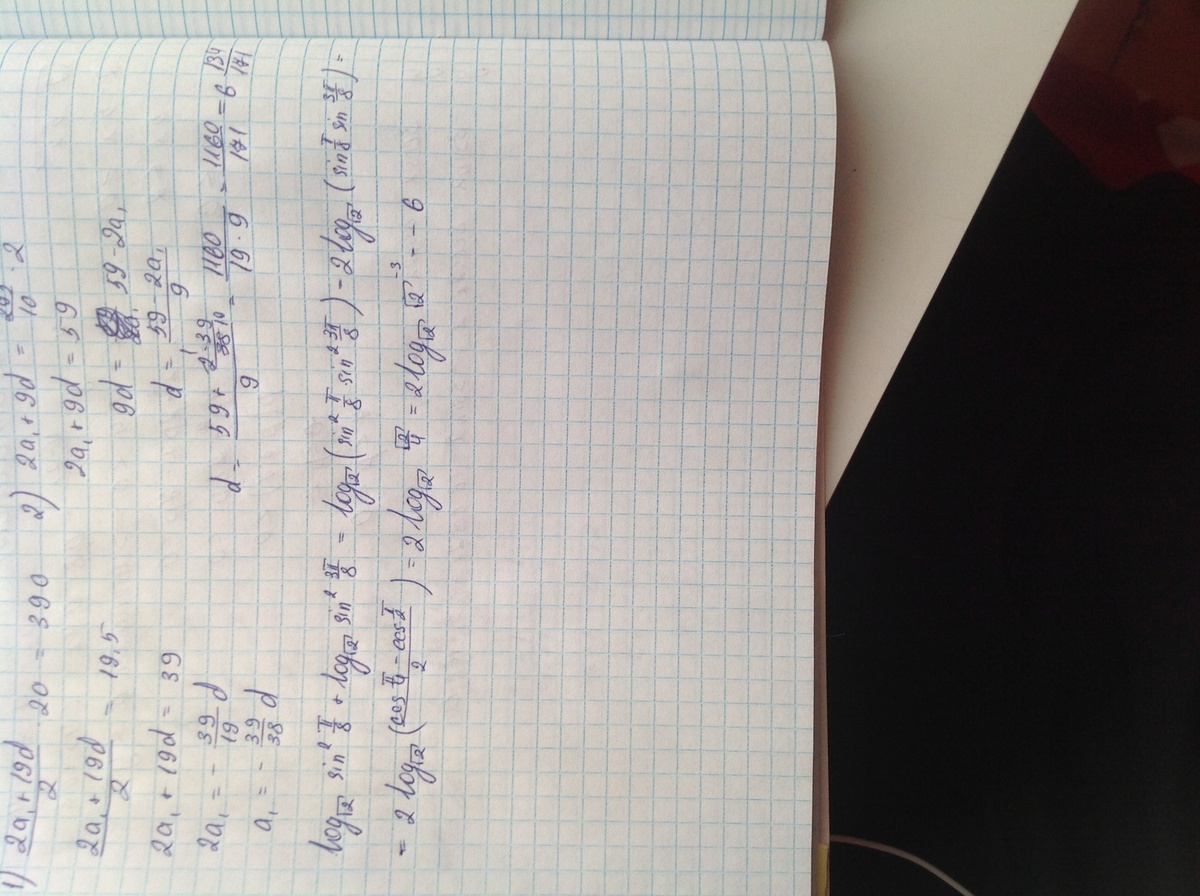 1) (2a₁ + 19d)/2 · 20 = 390
(2a₁ + 19d)/2 = 19,5
2a₁ + 19d = 39
2a₁ = - 39/19 d
a₁ = - 39/38 d
2) 2a₁ + 9d = /10 · 2
2a₁ + 9d = 59
9d = 59 - 2a₁
d = (59 - 2a₁)/9
d = = 1160/(19 · 9) = 1160/171 = 6 134/171
log_√2 sin² π/8 + log_√2 sin² 3π/8 = log_√2 (sin² π/8 sin² 3π/8) = 2 log_√2 (sin π/8 sin 3π/8) =
= 2 log_√2 ((cos π/4 - cos π/2)/2) = 2 log_√2 √2/4 = 2 log_√2 √2⁻³ = - 6